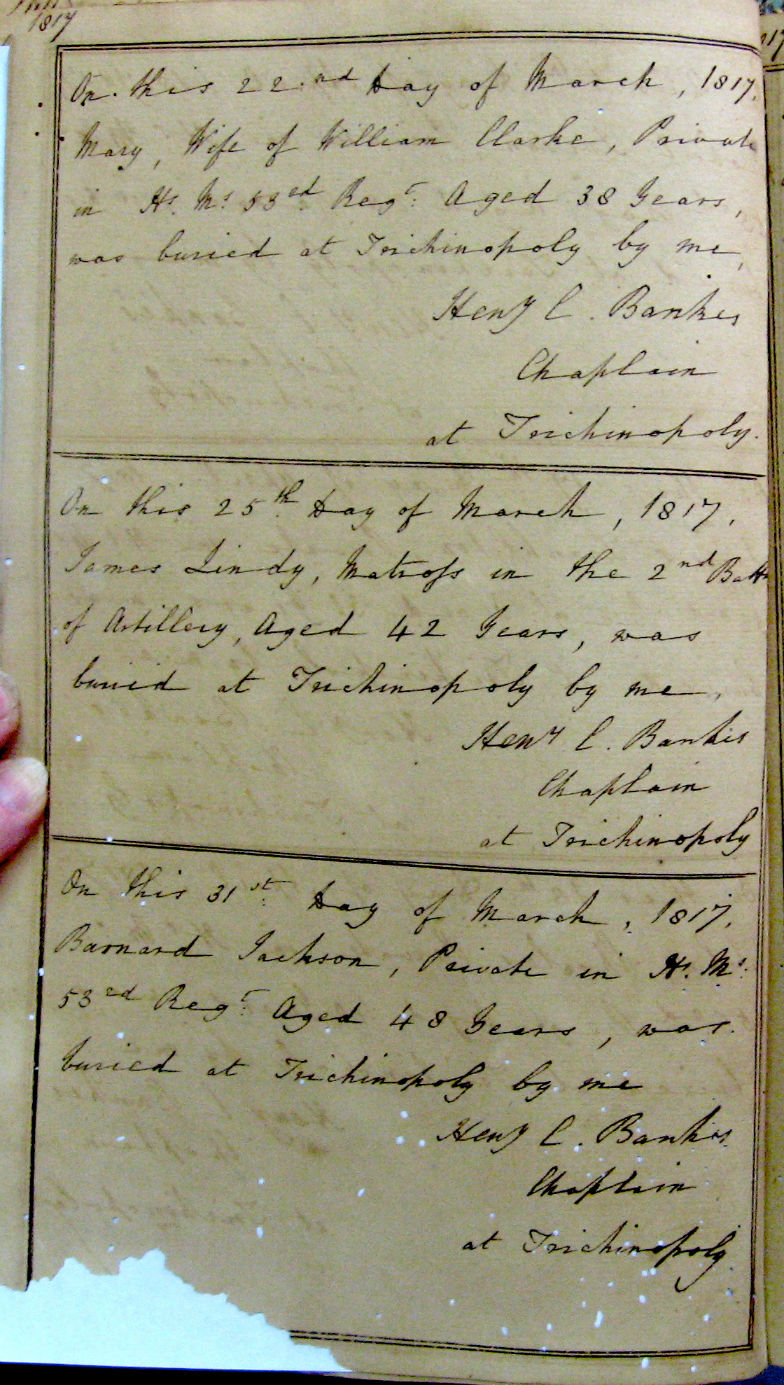 1817
On this 22nd Day of March, 1817,
Mary, Wife of William Clarke, Private
in Hs. Ms. 53rd Regt. Aged 38 Years,
was buried at Trichinopoly by me,
Heny C. Bankes
Chaplain
at Trichinopoly.
On this 25th Day of March, 1817,
James Lindy, Matross in the 2nd Battn
of Artillery, Aged 42 Years, was
buried at Trichinopoly by me,
Heny C. Bankes
Chaplain
at Trichinopoly
On this 31st Day of March, 1817,
Barnard Jackson, Private in Hs. Ms.
53rd Regt. Aged 48 Years, was
buried at Trichinopoly by me
Heny C. Bankes
Chaplain
at Trichinopoly